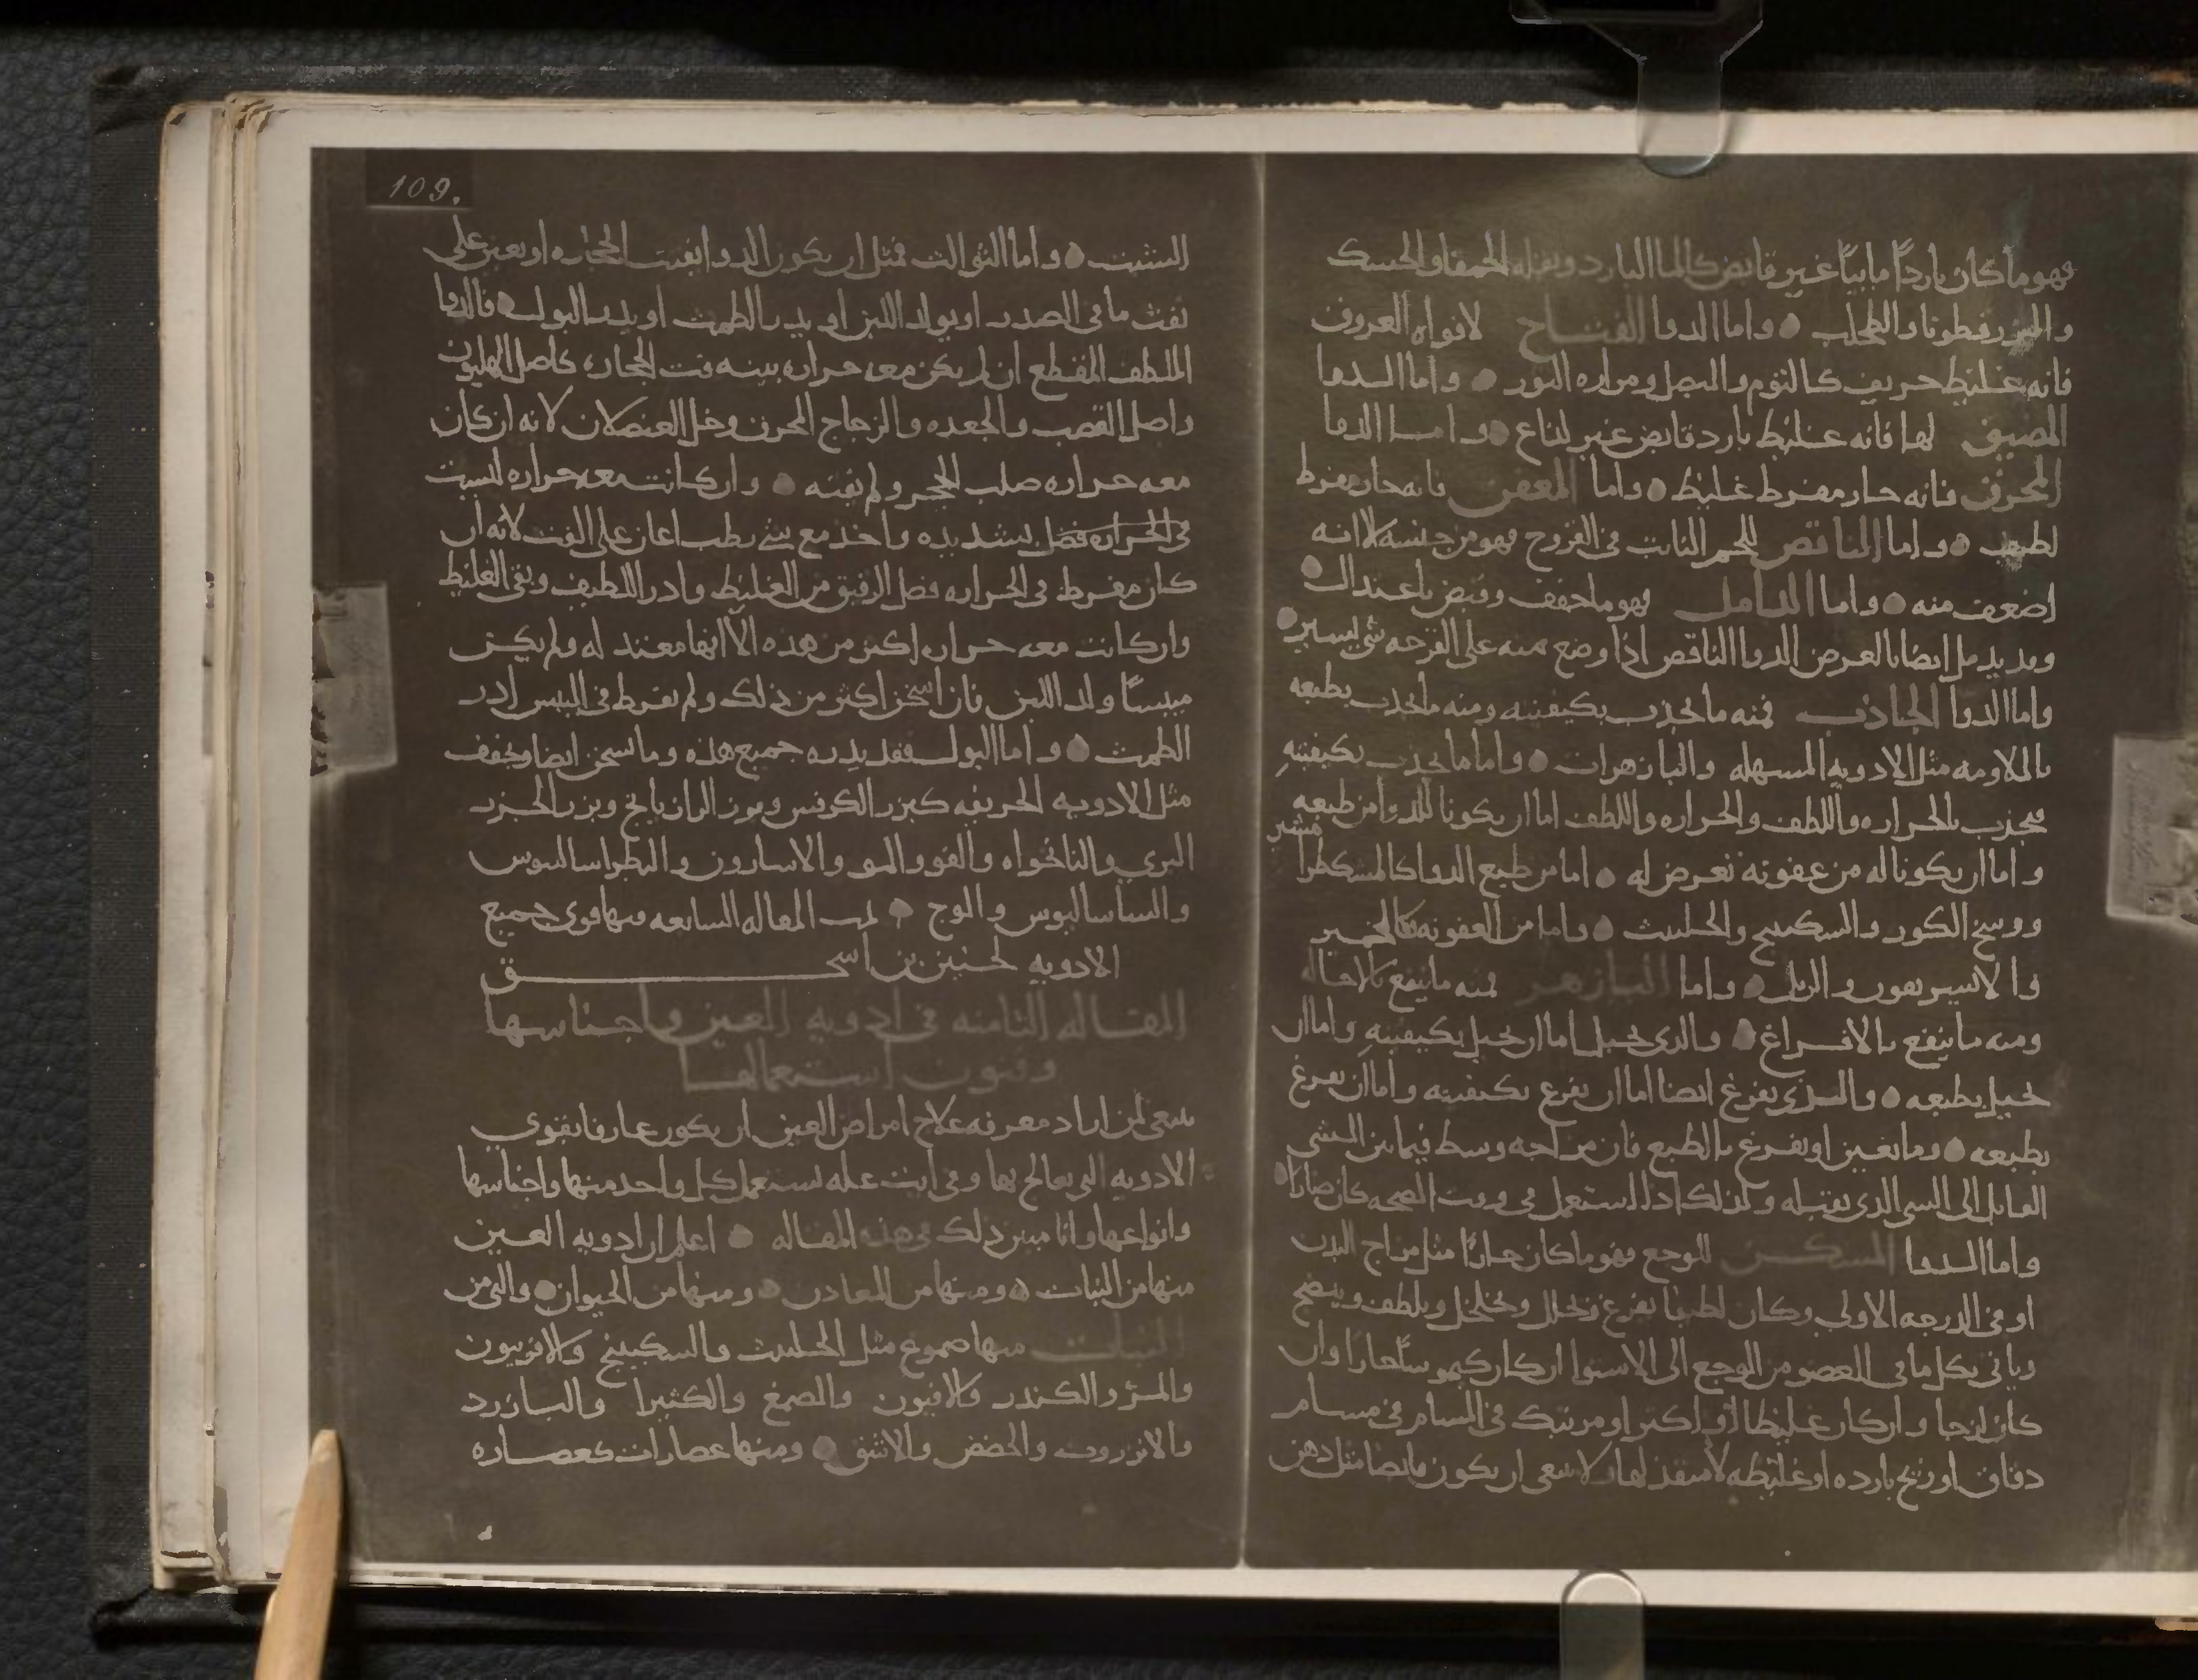 فهو ما كان باردا مائيا غير قابض كالما البارد وبقله الحمقا والحسك
والبزرقطونا والطحلب ۞ واما الدوا الفتاح لافواه العروق
فانه غليظ حريف كالثوم والبصل ومراره الثور ۞ واما الدوا
المضيق لها فانه غليظ بارد قابض غير لذاع ۞ واما الدوا
المحرق فانه حار مفرط غليظ ۞ واما المعفن فانه حار مفرط
لطيف ۞ واما الناقص للحم النابت فى القروح فهو من جنسه الا انه
اضعف منه ۞ واما الدامل فهو ما جفف وقبض باعتدال ۞
وقد يدمل ايضا بالعرض الدوا الناقص اذا وضع منه على القرحه شى يسير ۞
واما الدوا الجاذب فمنه ما يجذب بكيفيته ومنه ما يجذب بطبعه
بالملاومه مثل الادويه المسهله والبازهرات ۞ واما ما يجذب بكيفيته
فيجذب بالحراره واللطف والحراره واللطف اما ان يكونا للدوا من طبعه
واما ان يكونا له من عفونه تعرض له ۞ اما من طبع الدوا كالمشكطرا مشير
ووسخ الكور والسكبينج والحلتيت ۞ واما من العفونه كالخمير
والزبل ۞ واما البازهر فمنه ما ينفع بالاحاله
ومنه ما ينفع بالافراغ ۞ والذى يحيل اما ان يحيل بكيفيته واما ان
يحيل بطبعه ۞ والذى يفرغ ايضا اما ان يفرغ بكيفيته واما ان يفرغ
بطبعه ۞ وما يغير او يفرغ بالطبع فان مزاجه وسط فيما بين الشى
القابل الى الشى الذى يقتله وكذلك اذا استعمل فى وقت الصحه كان ضارا ۞
واما الدوا المسكن للوجع فهو ما كان حارا مثل مزاج البدن
او فى الدرجه الاولى وكان لطيفا يفرغ ويحلل ويخلخل ويلطف وينضج
وياتى بكل ما فى العضو من الوجع الى الاستوا ان كان كيموسا حارا وان
كان لزجا وان كان غليظا او اكثر او مرتبك فى المسام فى مسام
دقاق او ريح بارده او غليظه لا منفذ لها ولا ينبغى ان يكون قابضا مثل دهن
109.
الشبت ۞ واما الثوالث فمثل ان يكون الدوا يفتت الحجاره او يعين على
نفث ما فى الصدر او يولد اللبن او يدر الطمث او يدر البول ۞ فالدوا
الملطف المقطع ان لم يكن معه حراره بينه فتت الحجاره كاصل الهليون
واصل القصب والجعده والزجاج المحرق وخل العنصلان لانه ان كان
معه حراره صلب الحجر ولم يفته ۞ وان كانت معه حراره ليست
فى الحراره فضل بشديده واخذ مع شى رطب اعان على النفث لانه ان
كان مفرط فى الحراره فصل الرقيق من الغليظ وادر اللطيف وبقى الغليظ
وان كانت معه حراره اكثر من هذه الا انها معتدله ولم يكن
ميبسا ولد اللبن فان اسخن اكثر من ذلك ولم يفرط فى اليبس ادر
الطمث ۞ واما البول فقد يدره جميع هذه وما سخن ايضا وجفف
مثل الادويه الحريفه كبزر الكرفس وبزر الرازيانج وبزر الجزر
البرى والنانخواه والفو والمو والاسارون والبطراساليوس
والساساليوس والوج ۞ تمت المقاله السابعه فيها قوى جميع
الادويه لحنين بن اسحق
المقاله الثامنه فى ادويه العين واجناسها
وفنون استعمالها
ينبغى لمن اراد معرفه علاج امراض العين ان يكون عارفا بقوى
الادويه التى يعالج بها وفى ايت عله يستعمل كل واحد منها واجناسها
وانواعها وانا مبين ذلك فى هذه المقاله ۞ اعلم ان ادويه العين
منها من النبات ۞ ومنها من المعادن ۞ ومنها من الحيوان ۞ والتى من
النبات منها صموغ مثل الحلتيت والسكبينج والافربيون
والمر والكندر والافيون والصمغ والكثيرا والبازرد
والانزروت والحضض والاشق ۞ ومنها عصارات كعصاره